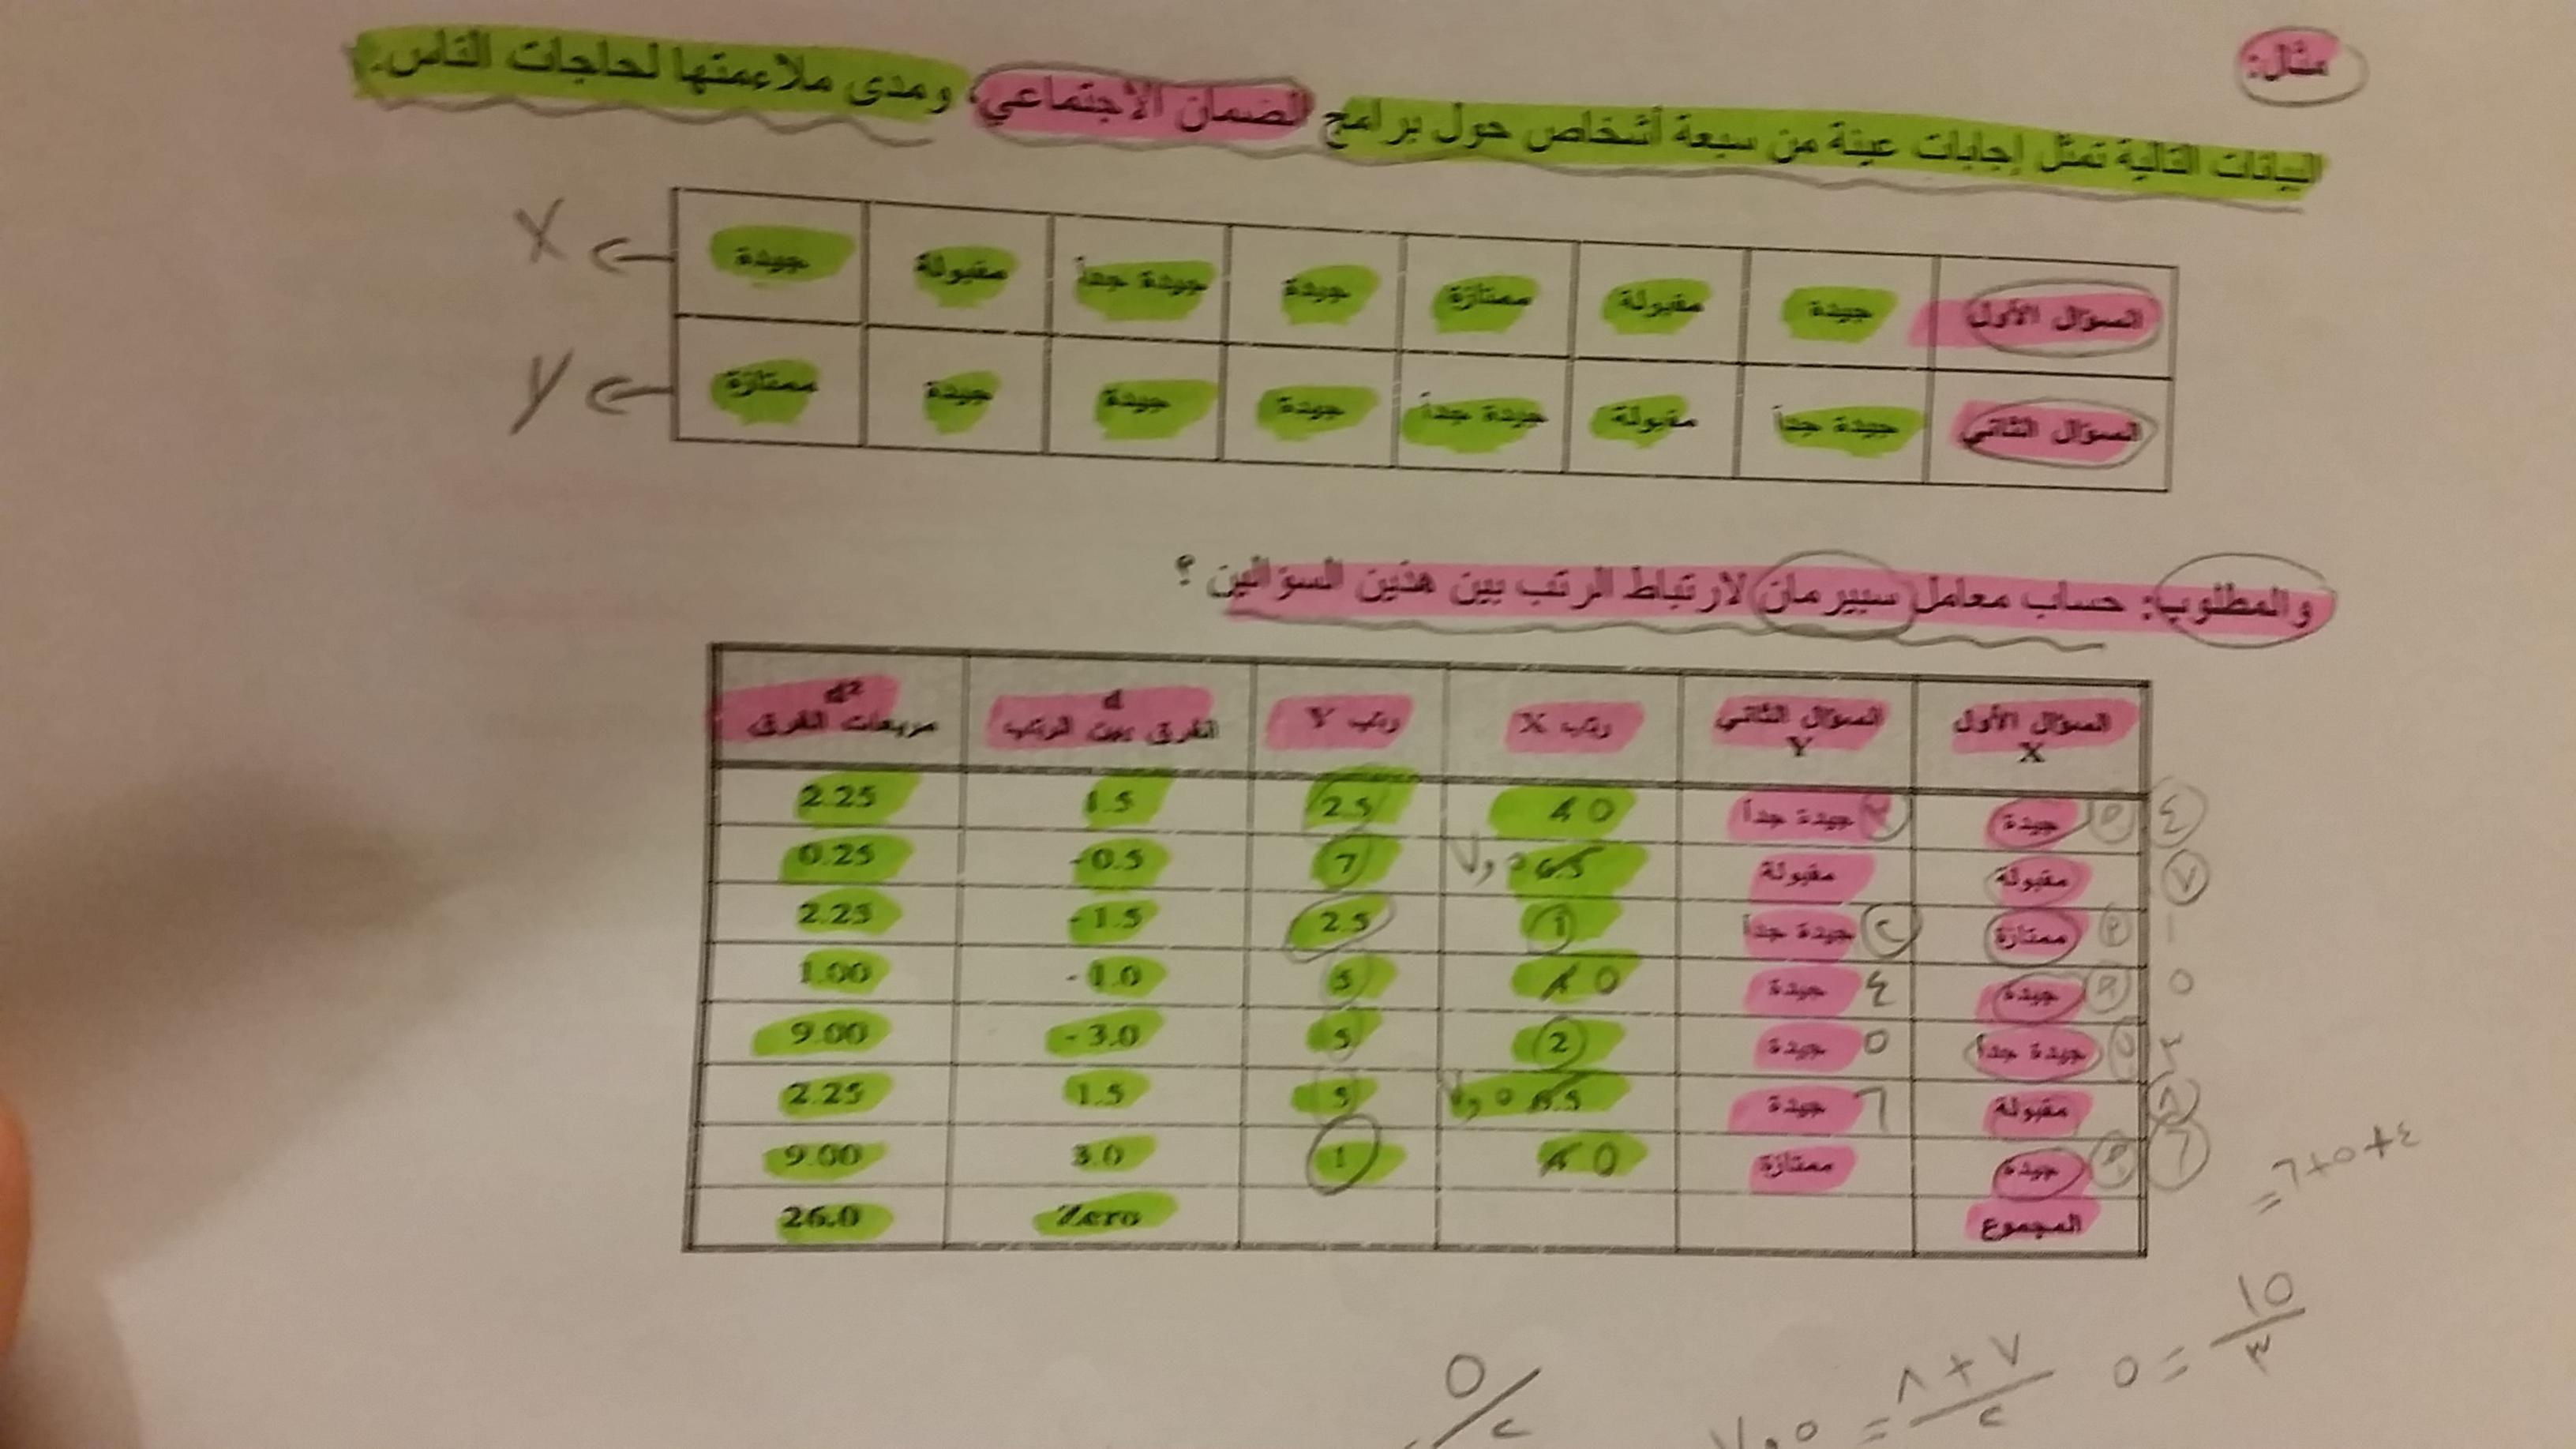 مثال:
البيانات التالية تمثل إجابات عينة من سبعة أشخاص حول برامج الضمان الاجتماعي، ومدى ملاءمتها لحاجات الناس.
السؤال الأول جيدة مقبولة ممتازة جيدة جيدة جداً مقبولة جيدة X
السؤال الثاني جيدة جداً مقبولة جيدة جداً جيدة جيدة جيدة ممتازة Y
والمطلوب: حساب معامل سبيرمان لارتباط الرتب بين هذين السؤالين ؟
السؤال الأول X السؤال الثاني Y رتب X رتب Y d الفرق بين الرتب d² مربعات الفرق
٤ جيدة جيدة جداً 4 ٥ 2.5 1.5 2.25
٧ مقبولة مقبولة 6.5 ٧,٥ 7 -0.5 0.25
١ ممتازة ٢ جيدة جداً 1 2.5 -1.5 2.25
٥ جيدة ٤ جيدة 4 ٥ 5 -1.0 1.00
جيدة جداً ٥ جيدة 2 5 -3.0 9.00
٨ مقبولة ٦ جيدة 6.5 ٧,٥ 5 1.5 2.25
٦ جيدة ممتازة 4 ٥ 1 3.0 9.00
المجموع Zero 26.0
٤+٥+٦=
١٥/٣ = ٥
٧+٨/٢ = ٧,٥
٥/٢